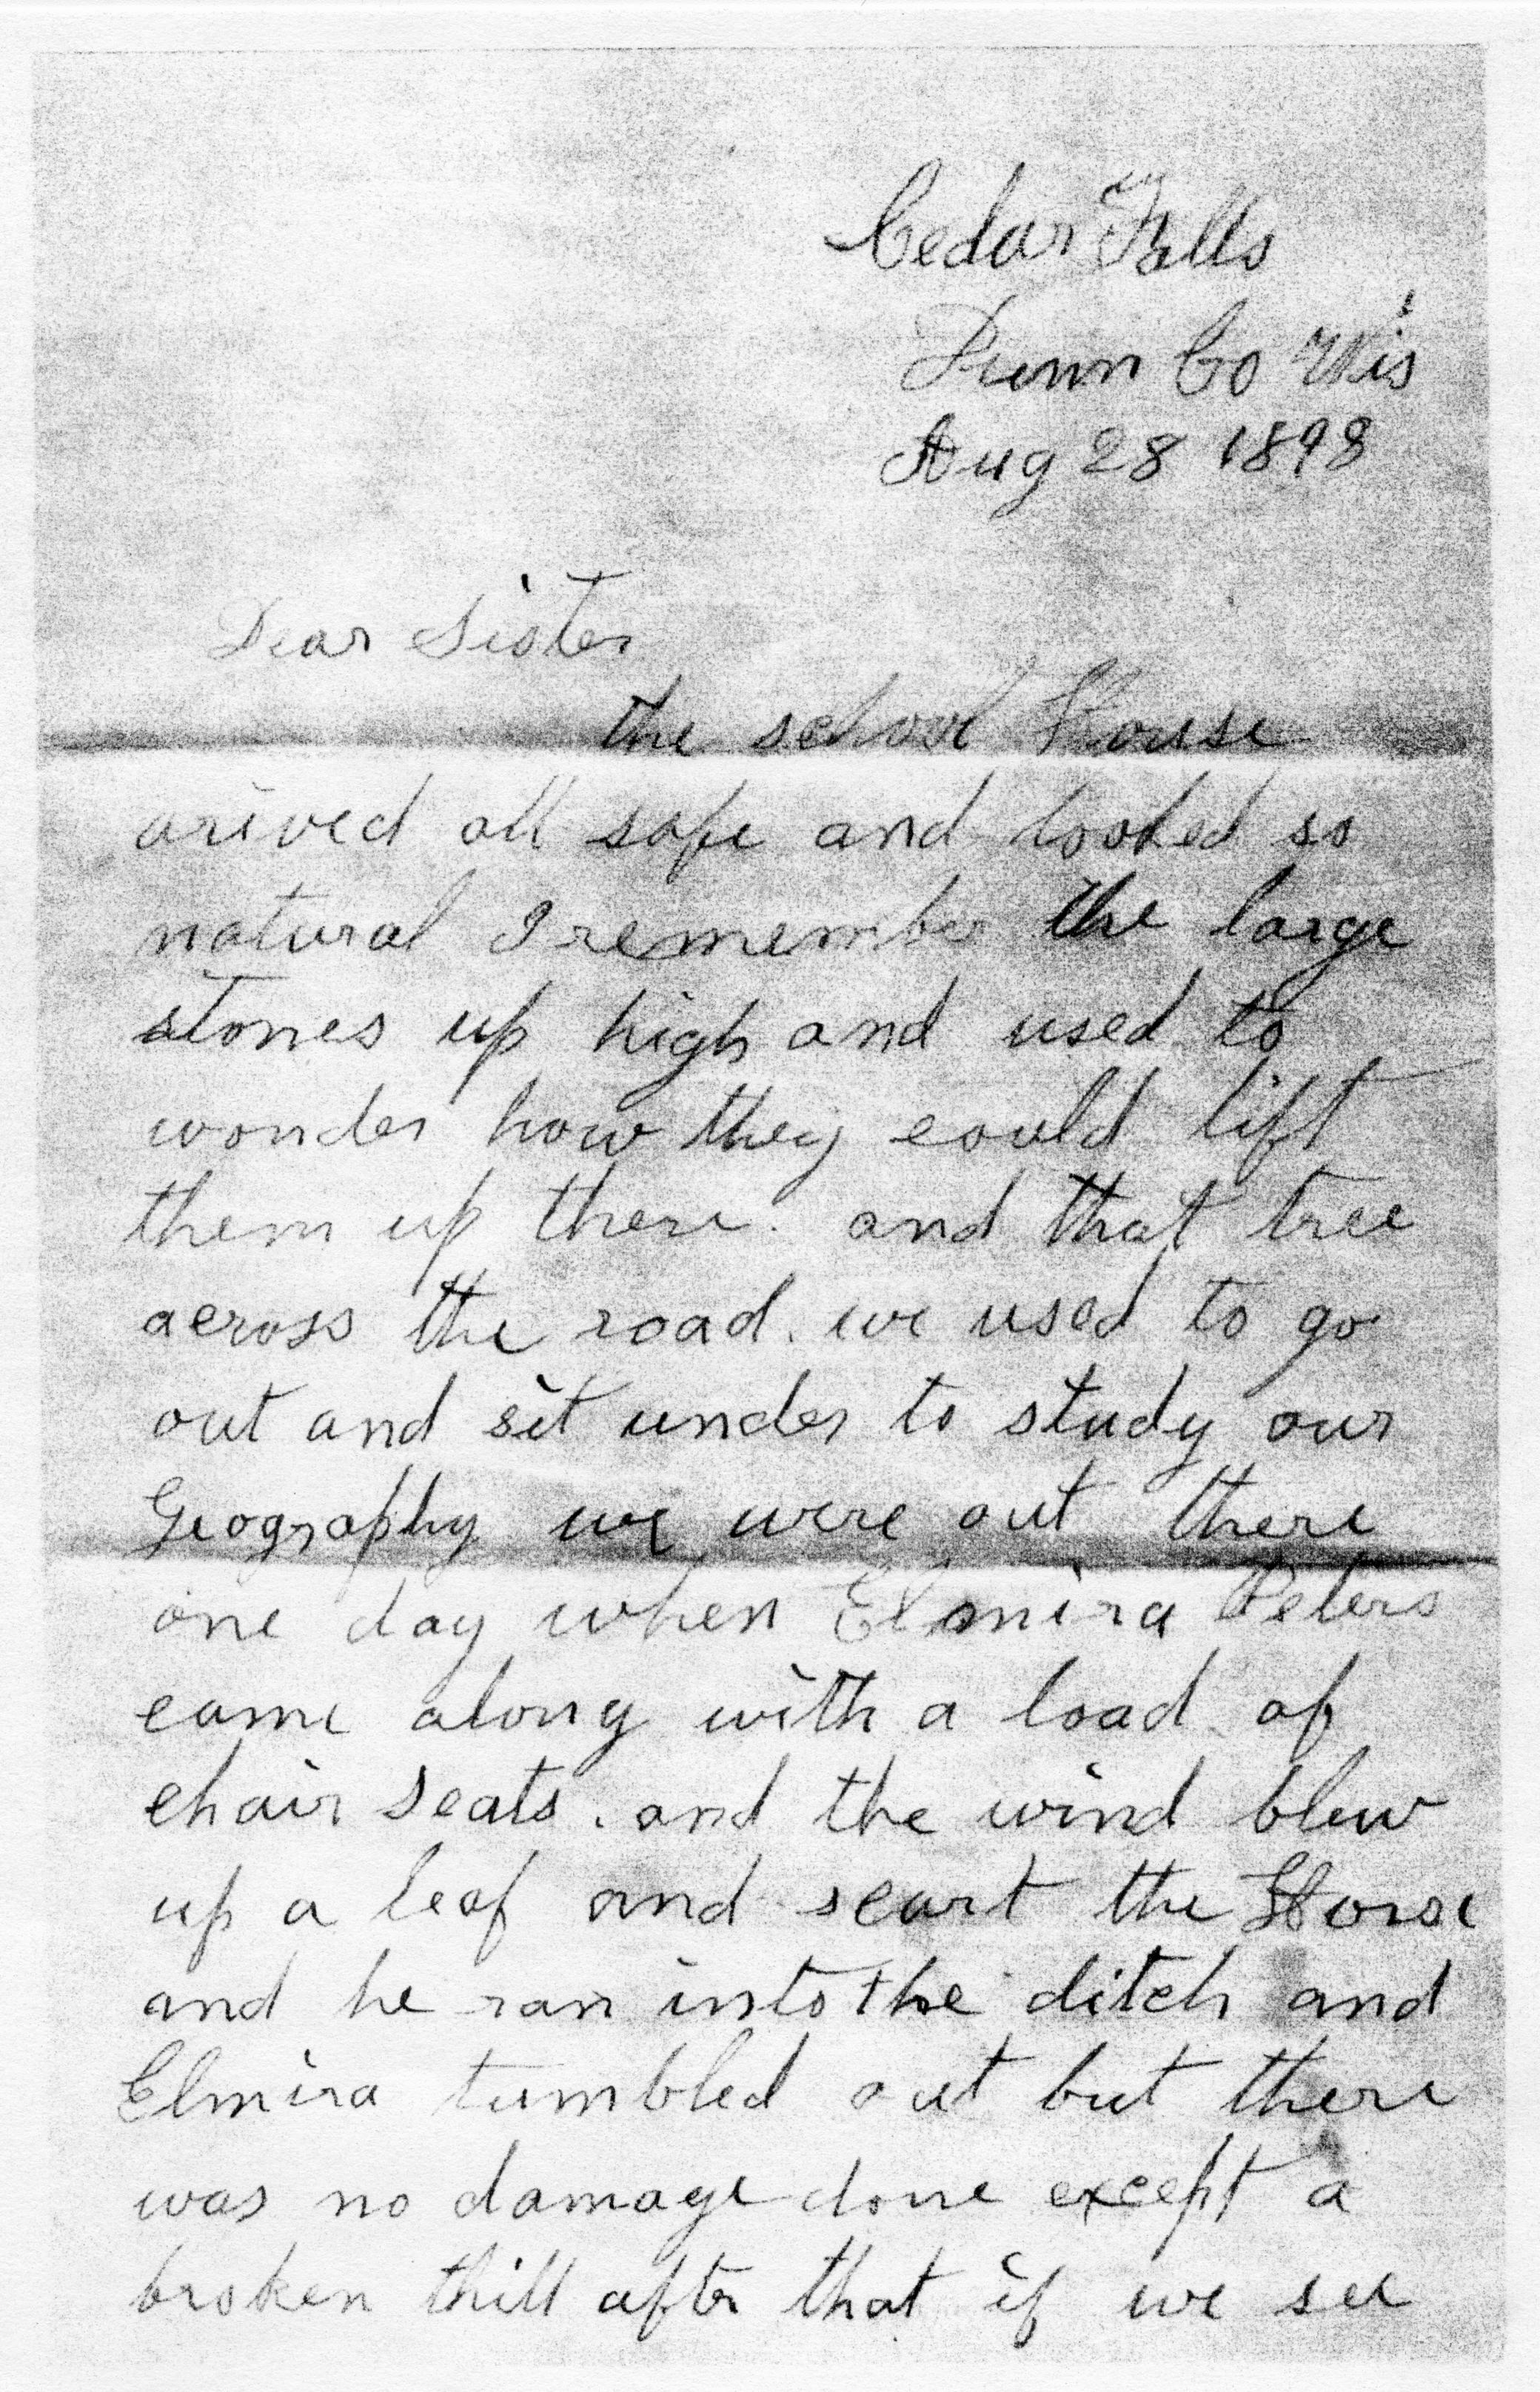 Cedar Falls
Dunn Co Wis
Aug 28 1898
Dear Sister
the school House
arived all safe and looked so
natural I remember the large
stones up high and used to
wonder how they could lift
them up there. and that tree
across the road. we used to go
out and sit under to study our
Geography we were out there
one day when Elmira Peters
came along with a load of
chair seats. and the wind blew
up a leaf and scart the Horse
and he ran into the ditch and
Elmira tumbled out but there
was no damage done except a
broken thill after that if we see